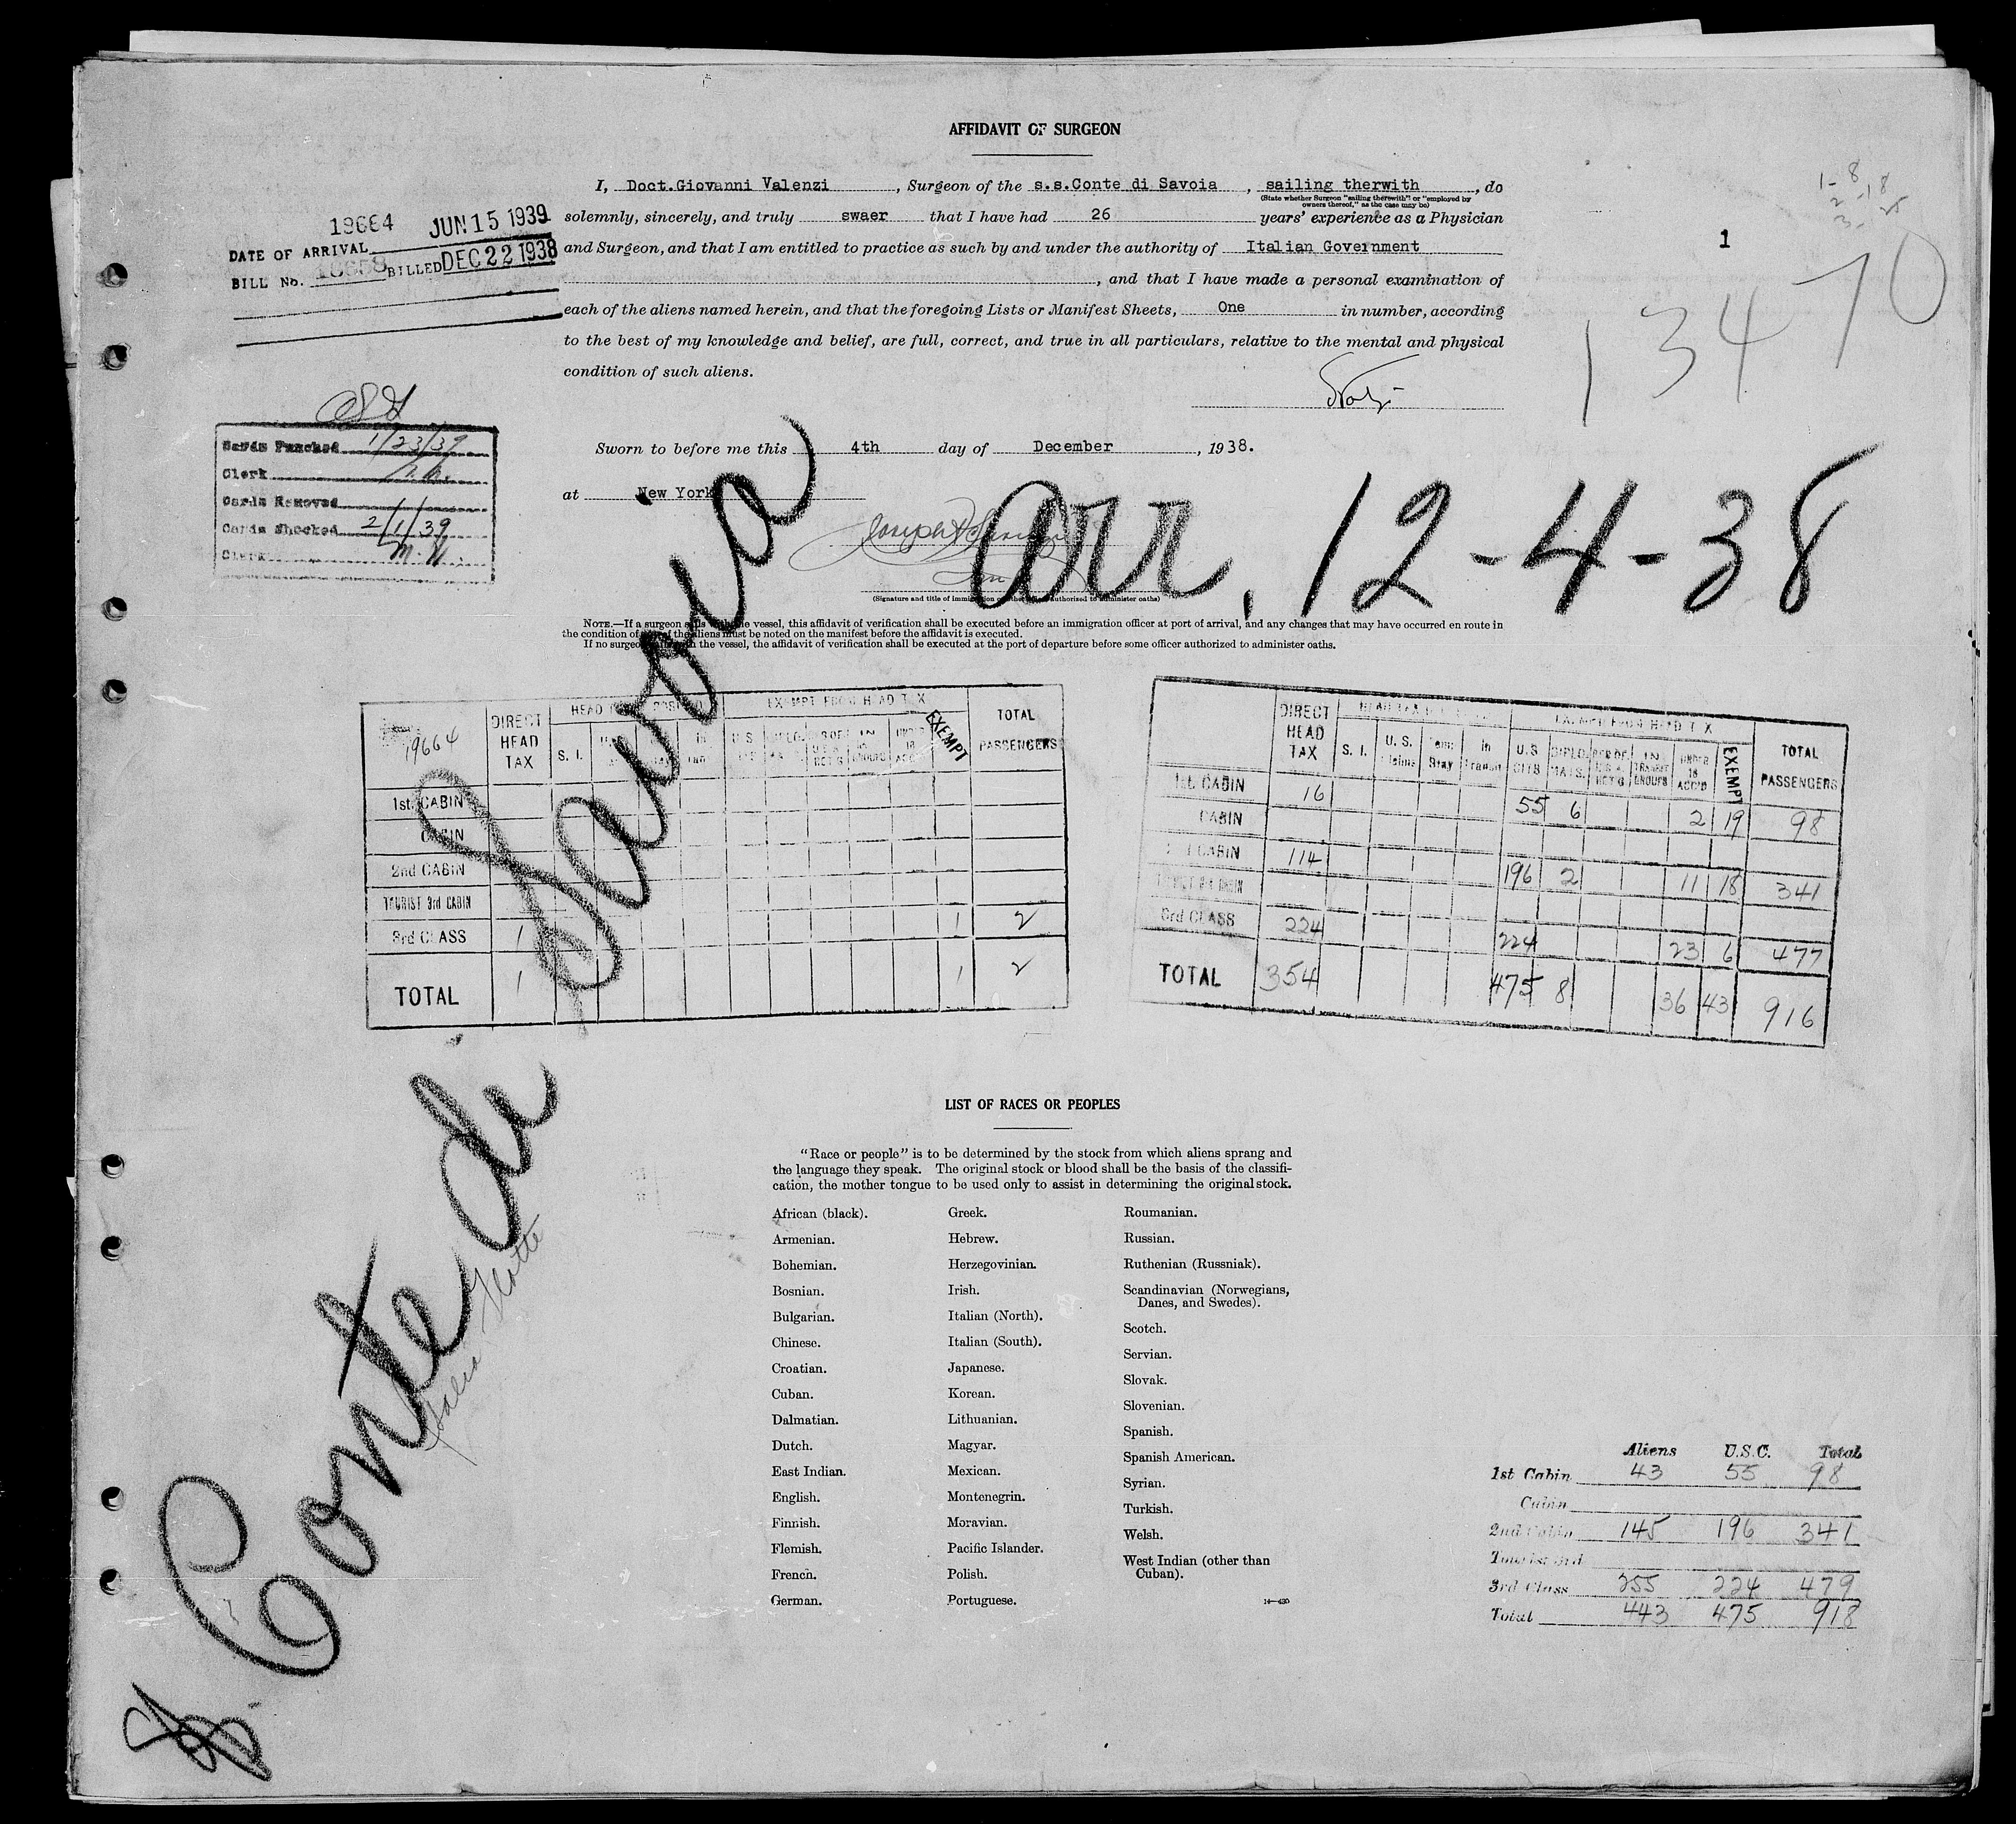 AFFIDAVIT OF SURGEON
I, Doct.Giovanni Valenzi, Surgeon of the s.s.Conte di Savoia, sailing therwith, do
(State whether Surgeon "sailing therewith" or "employed by owners thereof," as the case may be)
solemnly, sincerely, and truly swaer that I have had 26 years' experience as a Physician
and Surgeon, and that I am entitled to practice as such by and under the authority of Italian Government
, and that I have made a personal examination of
each of the aliens named herein, and that the foregoing Lists or Manifest Sheets, One in number, according
to the best of my knowledge and belief, are full, correct, and true in all particulars, relative to the mental and physical
condition of such aliens.
Sworn to before me this 4th day of December, 1938.
at New York
(Signature and title of immigration officer authorized to administer oaths)
NOTE.—If a surgeon sails with the vessel, this affidavit of verification shall be executed before an immigration officer at port of arrival, and any changes that may have occurred en route in
the condition of any of the aliens must be noted on the manifest before the affidavit is executed.
If no surgeon sails with the vessel, the affidavit of verification shall be executed at the port of departure before some officer authorized to administer oaths.
19664 JUN 15 1939
DATE OF ARRIVAL
BILL No. BILLED DEC 22 1938
1
1- 8
13470
Cards Punched 1/23/39
Clerk
Cards Removed
Cards Checked 2/1/39
Clerk M.W.
arr. 12-4-38
S. Conte di Savoia
19664
DIRECT HEAD TAX S. I. EXEMPT FROM HEAD TAX EXEMPT TOTAL PASSENGERS
1st CABIN
CABIN
2nd CABIN
TOURIST 3rd CABIN
3rd CLASS 1 1 2
TOTAL 1 1 2
DIRECT HEAD TAX S. I. U. S. In Transit EXEMPT FROM HEAD TAX U.S CITS DIPLOMATS. IN TRANSIT GROUPS UNDER 16 ACC'D EXEMPT TOTAL PASSENGERS
1st CABIN 16 55 6 2 19 98
CABIN
2nd CABIN 114 196 2 11 18 341
TOURIST 3rd CABIN
3rd CLASS 224 224 23 6 477
TOTAL 354 475 8 36 43 916
LIST OF RACES OR PEOPLES
"Race or people" is to be determined by the stock from which aliens sprang and
the language they speak. The original stock or blood shall be the basis of the classifi-
cation, the mother tongue to be used only to assist in determining the original stock.
African (black).
Armenian.
Bohemian.
Bosnian.
Bulgarian.
Chinese.
Croatian.
Cuban.
Dalmatian.
Dutch.
East Indian.
English.
Finnish.
Flemish.
French.
German.
Greek.
Hebrew.
Herzegovinian.
Irish.
Italian (North).
Italian (South).
Japanese.
Korean.
Lithuanian.
Magyar.
Mexican.
Montenegrin.
Moravian.
Pacific Islander.
Polish.
Portuguese.
Roumanian.
Russian.
Ruthenian (Russniak).
Scandinavian (Norwegians,
Danes, and Swedes).
Scotch.
Servian.
Slovak.
Slovenian.
Spanish.
Spanish American.
Syrian.
Turkish.
Welsh.
West Indian (other than
Cuban).
14—430
Aliens U.S.C. Total
1st Cabin 43 55 98
Cabin
2nd Cabin 145 196 341
Tourist 3rd
3rd Class 255 224 479
Total 443 475 918